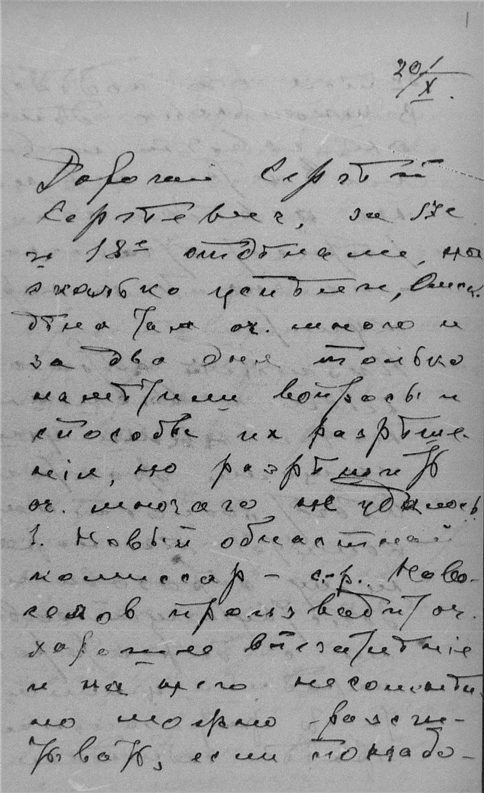 1
20/X.
Дорогой Сергѣй
Сергѣевич, за 17е
и 18е отдѣлами, на
сколько успѣли,
дѣла там оч. много и
за два дня только
намѣтили вопросы и
способы их разрѣше-
нія, но разрѣшить
оч. многаго не удалось
1. Новый областной
комиссар – с.-р. Ново-
селов производит оч.
хорошее впечатлѣніе
и на него несомнѣн-
но можно рассчи-
тывать, если